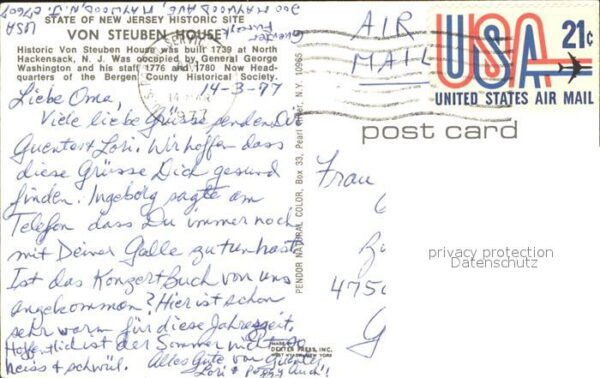 STATE OF NEW JERSEY HISTORIC SITE
VON STEUBEN HOUSE
Historic Von Steuben House was built 1739 at North
Hackensack, N. J. Was occupied by General George
Washington and his staff 1776 and 1780 Now Head-
quarters of the Bergen County Historical Society.
USA
14-3-77
Liebe Oma,
Viele liebe Grüsse senden Dir
Guenter & Lori. Wir hoffen dass
diese Grüsse Dich gesund
finden. Ingeborg sagte am
Telefon dass Du immer noch
mit Deiner Galle zu tun hast.
Ist das Konzertbuch von uns
angekommen? Hier ist schon
sehr warm für diese Jahreszeit.
Hoffentlich ist der Sommer nicht so
heiss & schwül. Alles Gute von Guenter
Lori & Poggy auch!
PENDOR NATURAL COLOR, Box 33, Pearl River, N.Y. 10965
MADE BY
DEXTER PRESS, INC.
WEST NYACK, NEW YORK
AIR
MAIL
USA 21¢
UNITED STATES AIR MAIL
post card
Frau
475
G
privacy protection
Datenschutz